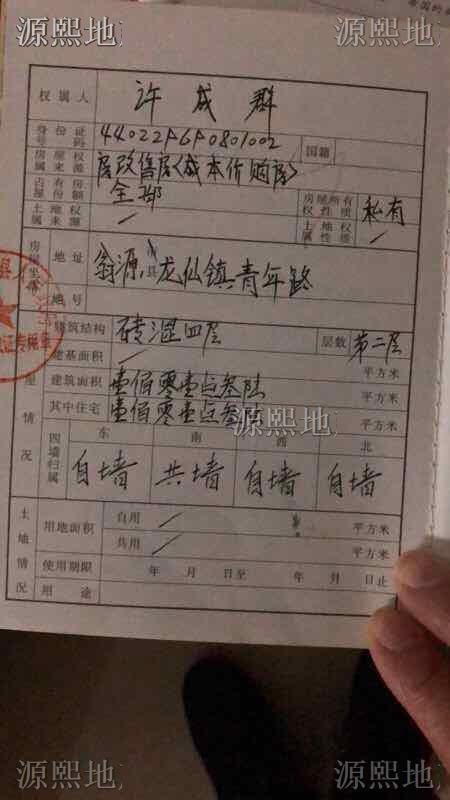 源熙地 源熙地
权属人 许成群
身份证号码 44022519640801002 国籍
房屋权属来源 房改售房<成本价购房>
占有房屋份额 全部 房屋所有权性质 私有
土地权属来源 / 土地权属性质 /
房屋坐落 地址 翁源县龙仙镇青年路
地号
建筑结构 砖混四层 层数 第二层
建基面积 / 平方米
建筑面积 壹佰零壹点叁陆 平方米
其中住宅 壹佰零壹点叁陆 平方米
源熙地 源熙地
情况
四墙归属 东 南 西 北
自墙 共墙 自墙 自墙
土地情况 用地面积 自用 / 平方米
共用 / 平方米
使用期限 年 月 日至 年 月 日止
用途
源熙地 源熙地